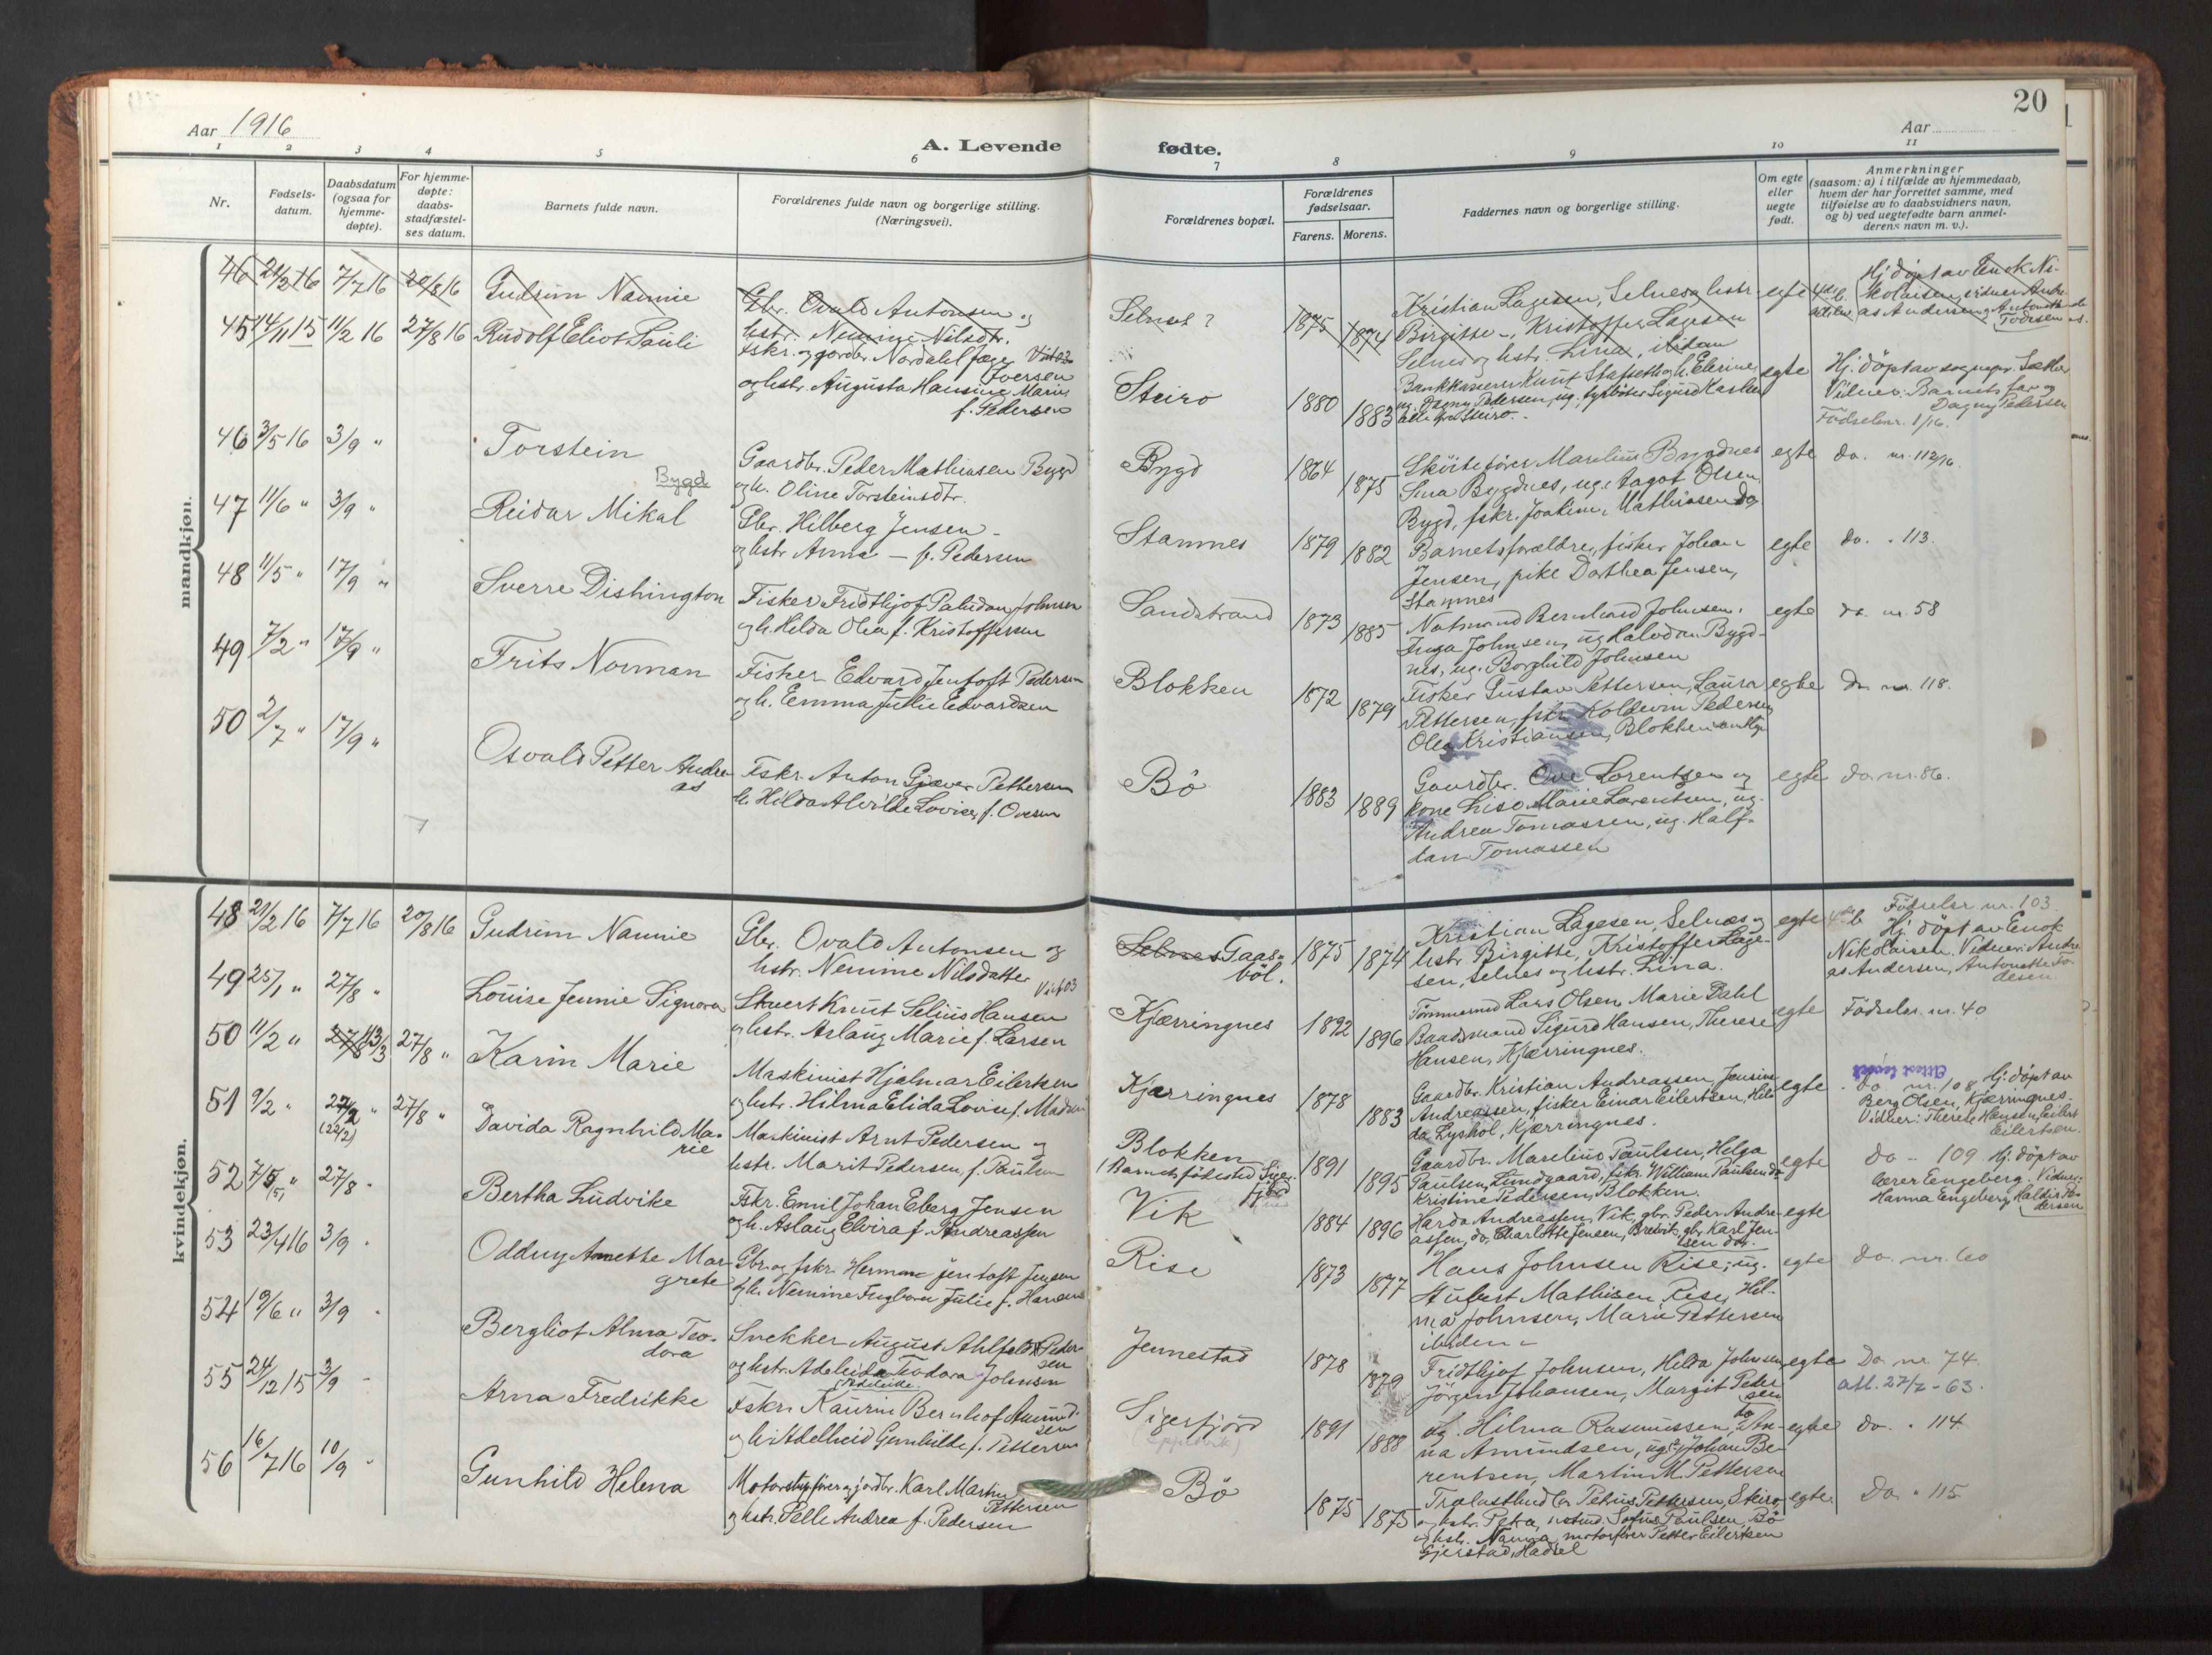 20
Aar 1916
A. Levende
fødte.
Aar
1 2 3 4 5 6 7 8 9 10 11
Nr.
Fødsels-
datum.
Daabsdatum
(ogsaa for
hjemme-
døpte).
For hjemme-
døpte:
daabs-
stadfæstel-
ses datum.
Barnets fulde navn.
Forældrenes fulde navn og borgerlige stilling.
(Næringsvei).
Forældrenes bopæl.
Forældrenes
fødselsaar.
Farens. Morens.
Faddernes navn og borgerlige stilling.
Om egte
eller
uegte
født.
Anmerkninger
(saasom: a) i tilfælde av hjemmedaab,
hvem der har forrettet samme, med
tilføielse av to daabsvidners navn,
og b) ved uegtefødte barn anmel-
derens navn m. v.).
mandkjøn.
46 21/2 16 7/7 16 20/8 16 Gudrun Nannie
Gbr. Ovald Antonsen og
hstr. Nemine Nilsdtr.
Selnes? 1875 1874
Kristian Lagesen, Selnes og hstr.
Birgitte, Kristoffer Lagesen
Selnes og hstr. Lina, ibidem
egte
Hj. döpt av Enok Ni-
kolaisen, vidner Andre-
as Andersen, Antonette
Todesen
45 14/11 15 11/2 16 27/8 16 Rudolf Eliot Pauli
Fskr. og gordbr. Nordahl
Iversen
og hstr. Augusta Hansine Marie
f. Pedersen
Steiro 1880 1883
Bankkasserer Knut Stafseth og h. Elerine,
ug. Dagny Pedersen, ug. Sigurd Karlsen
alle fra Steiro.
egte
Hj. döpt av sognepr. Sæther
Vidner: Barnets far og
Dagny Pedersen
Födselsnr. 1/16.
46 3/5 16 3/9 " Torstein
Bygd
Gaardbr. Peder Mathiasen Bygd
og h. Oline Torsteinsdtr.
Bygd 1864 1875
Sköitefører Marelius Bygdnes
Lina Bygdnes, ug. Aagot Olsen,
Bygd, fskr. Joakim Mathiasen do
egte do. nr. 112/16.
47 11/6 " 3/9 " Reidar Mikal
Gbr. Hilberg Jensen
og hstr. Anna — f. Pedersen
Stamnes 1879 1882
Barnets forældre, fisker Johan
Jensen, pike Dorthea Jensen,
Stamnes
egte do. " 113.
48 11/5 " 17/9 " Sverre Dishington
Fisker Fridthjof Paludan Johnsen
og h. Hilda Olea f. Kristoffersen
Sandstrand 1873 1885
Notmand Bernhard Johnsen,
Inga Johnsen, ug Halvdan Bygd-
nes, ug. Borghild Johnsen
egte do. nr. 58
49 7/2 " 17/9 " Frits Norman
Fisker Edvard Jentoft Pedersen
og h. Emma Julie Edvardsen
Blokken 1872 1879
Fisker Gustav Pettersen, Laura
Pettersen, fskr. Koldevin Pedersen
Olea Kristiansen, Blokken
egte do. nr. 118.
50 2/7 " 17/9 " Osvald Petter Andre
as
Fskr. Anton Gjæver Pettersen
h. Hilda Alvilde Lovise, f. Ovesen
Bö 1883 1889
Gaardbr. Ove Lorentsen og
kone Lise Marie Lorentsen, ug.
Andrea Tomassen, ug. Half-
dan Tomassen
egte do. nr. 86.
kvindekjøn.
48 21/2 16 7/7 16 20/8 16 Gudrun Nannie
Gbr. Ovald Antonsen og
hstr. Nemine Nilsdatter
Selnes Gaas-
böl. 1875 1874
Kristian Lagesen, Selnæs og
hstr. Birgitte, Kristoffer Lage-
sen, Selnes og hstr. Lina.
egte
Födselsr. nr. 103
Hj. döpt av Enok
Nikolaisen. Vidner: Andre
as Andersen, Antonette To-
desen.
49 25/1 " 27/8 " Louise Jennie Signora
Stuert Knut Selius Hansen
og hstr. Aslaug Marie f. Larsen
Kjærringnes 1892 1896
Tömmermd Lars Olsen, Marie Dahl
Baadsmand Sigurd Hansen, Therese
Hansen, Kjærringnes.
egte Födselsr. nr. 40
50 11/2 " 13/3 27/8 " Karin Marie
Maskinist Hjalmar Eilertsen
og hstr. Hilma Elida Lovise f. Madsen
Kjærringnes 1878 1883
Gaardbr. Kristian Andreassen, Jensine
Andreassen, fisker Einar Eilertsen, Hil-
da Lyshol, Kjærringnes.
egte
do nr. 108. Hj. döpt av
Berg Olsen, Kjærringnes.
Vidner: Therese Hansen, Eilert
Eilertsen.
51 9/2 " 27/2 " (22/2) 27/8 " Davida Ragnhild Ma-
rie
Maskinist Arnt Pedersen og
hstr. Marit Pedersen, f. Paulsen
Blokken
(Barnets födested Siger-
fjord
1891 1895
Gaardbr. Marelius Paulsen, Helga
Paulsen, Lundgaard, fskr. William Paulsen do
Kristine Pedersen, Blokken.
egte
do - 109 Hj. döpt av
Engeberg. Vidner:
Hanna Engeberg, Haldis Pe-
dersen
52 7/5 " 27/8 " Bertha Ludvike
Fskr. Emil Johan Eberg Jensen
og h. Aslaug Elvira f. Andreassen
Vik 1884 1896
Harda Andreassen, Vik, gbr. Peder Andre-
assen, do, Charlotte Jensen, Bredvik, gbr. Karl Jen-
sen do.
egte
53 23/4 16 3/9 " Oddny Annette Mar-
grete
Gbr. og fskr. Herman Jentoft Jensen
og h. Nemine Julie f. Hansen
Rise 1873 1877
Hans Johnsen Rise, ug.
Hubert Mathisen Rise, Hil-
ma Johnsen, Marie Pettersen
ibidem
egte do. nr. 60
54 19/6 " 3/9 " Bergliot Alma Teo-
dora
Snekker August Ahlfeldt Peder-
sen
og hstr. Adeleide Teodora Johnsen
Jennestad 1878 1879
Fridthjof Johnsen, Hilda Johnsen
Jörgen Johansen, Margit Peder
sen
egte Do. nr. 74.
att. 27/7-63.
55 24/12 15 3/9 " Arna Fredrikke
Fskr. Kaurin Bernhof Amund-
sen
og h. Adelheid Gunhilde f. Pettersen
Sigerfjord 1891 1888
ug. Hilma Rasmussen, do, An-
na Amundsen, ug. Johan Be-
rentsen, Martin M. Pettersen
egte do. " 114.
56 16/7 16 10/9 " Gunhild Helena
Motorskipfører og jordbr. Karl Martin
Pettersen
og hstr. Pelle Andrea f. Pedersen
Bö 1875 1875
Trælasthndlr Petrus Pettersen, Steiro
og hstr. Petra, notmd. Sofus Paulsen, Bö
og hstr. Nanna, motorfører Petter Eilertsen
Gjerstad, Hadsel
egte Do. " 115.